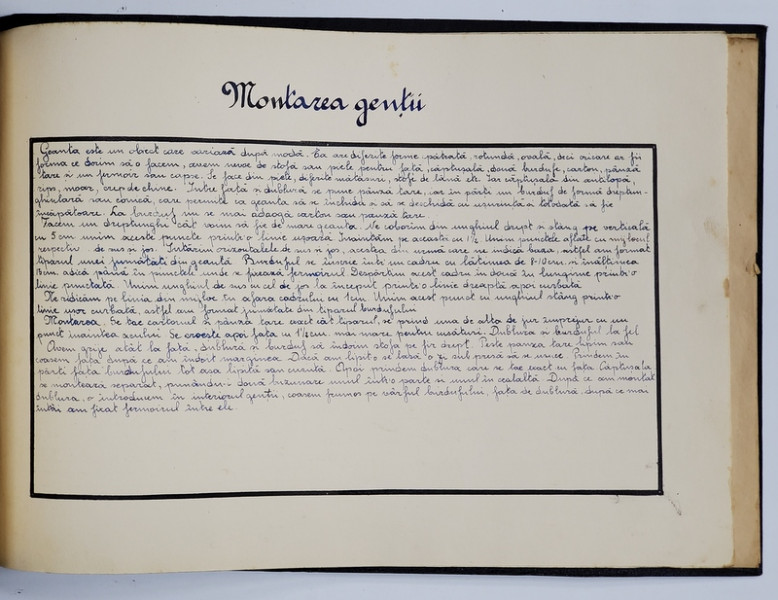 Montarea genții
Geanta este un obiect care variază după modă. Ea are diferite forme pătrată, rotundă, ovală, deci oricare ar fii
forma ce dorim să o facem, avem nevoe de stofă sau piele pentru față, căptușală, două burdufe, carton, pânză
tare și un fermoir sau capse. Se face din piele, diferite mătăsuri, stofe de lână etc. Iar căptușala din antilopă,
rips, moar, crep de chine. Între față și dublură se pune pânză tare, iar în părți un burduf de formă dreptun-
ghiulară sau conică, care permite ca geanta să se închidă și să se deschidă cu ușurință și totodată să fie
încăpătoare. La burduf nu se mai adaogă carton sau pânză tare.
Facem un dreptunghi cât vom să fie de mare geanta. Ne coborim din unghiul drept și stâng pe verticală
cu 5 cm unim aceste puncte printr-o linie ușoară. Înaintăm pe aceasta cu 1½ Unim punctele aflate cu mijlocul
respectiv de sus și jos. Întărim orizontalele de sus și jos, acestea din urmă care ne indică baza, astfel am format
tiparul unei jumătăți din geantă. Burduful se înscrie într'un cadru cu lățimea de 8-10 cm. și înălțimea
13 cm. adică până în punctele unde se fixează fermoirul. Despărțim acest cadru în două în lungime printr-o
linie punctată. Unim unghiul de sus cu cel de jos la început printr-o linie dreaptă apoi curbată.
Ne ridicăm pe linia din mijloc în afara cadrului cu 1 cm. Unim acest punct cu unghiul stâng printr-o
linie ușor curbată, astfel am format jumătate din tiparul burdufului.
Montarea. Se tae cartonul și pânză tare exact cât tiparul, se prind una de alta de jur împrejur cu un
punct înaintea acului. Se croește apoi fața cu 1½ cm. mai mare pentru cusături. Dublura și burduful la fel
Avem grije atât la față, dublură și burduf să îndoim stofa pe fir drept. Peste pânza tare lipim sau
coasem fața după ce am îndoit marginea. Dacă am lipit-o se lasă o zi sub presă să se usuce. Prindem în
părți fața burdufului tot așa lipită sau cusută. Apoi prindem dublura care se tae exact cu fața. Căptușala
se montează separat, punându-i două buzunare unul într'o parte și unul în cealaltă. După ce am montat
dublura, o introducem în interiorul genții, coasem frumos pe vârful burdufului, fața de dublură, după ce mai
întâi am fixat fermoirul între ele.